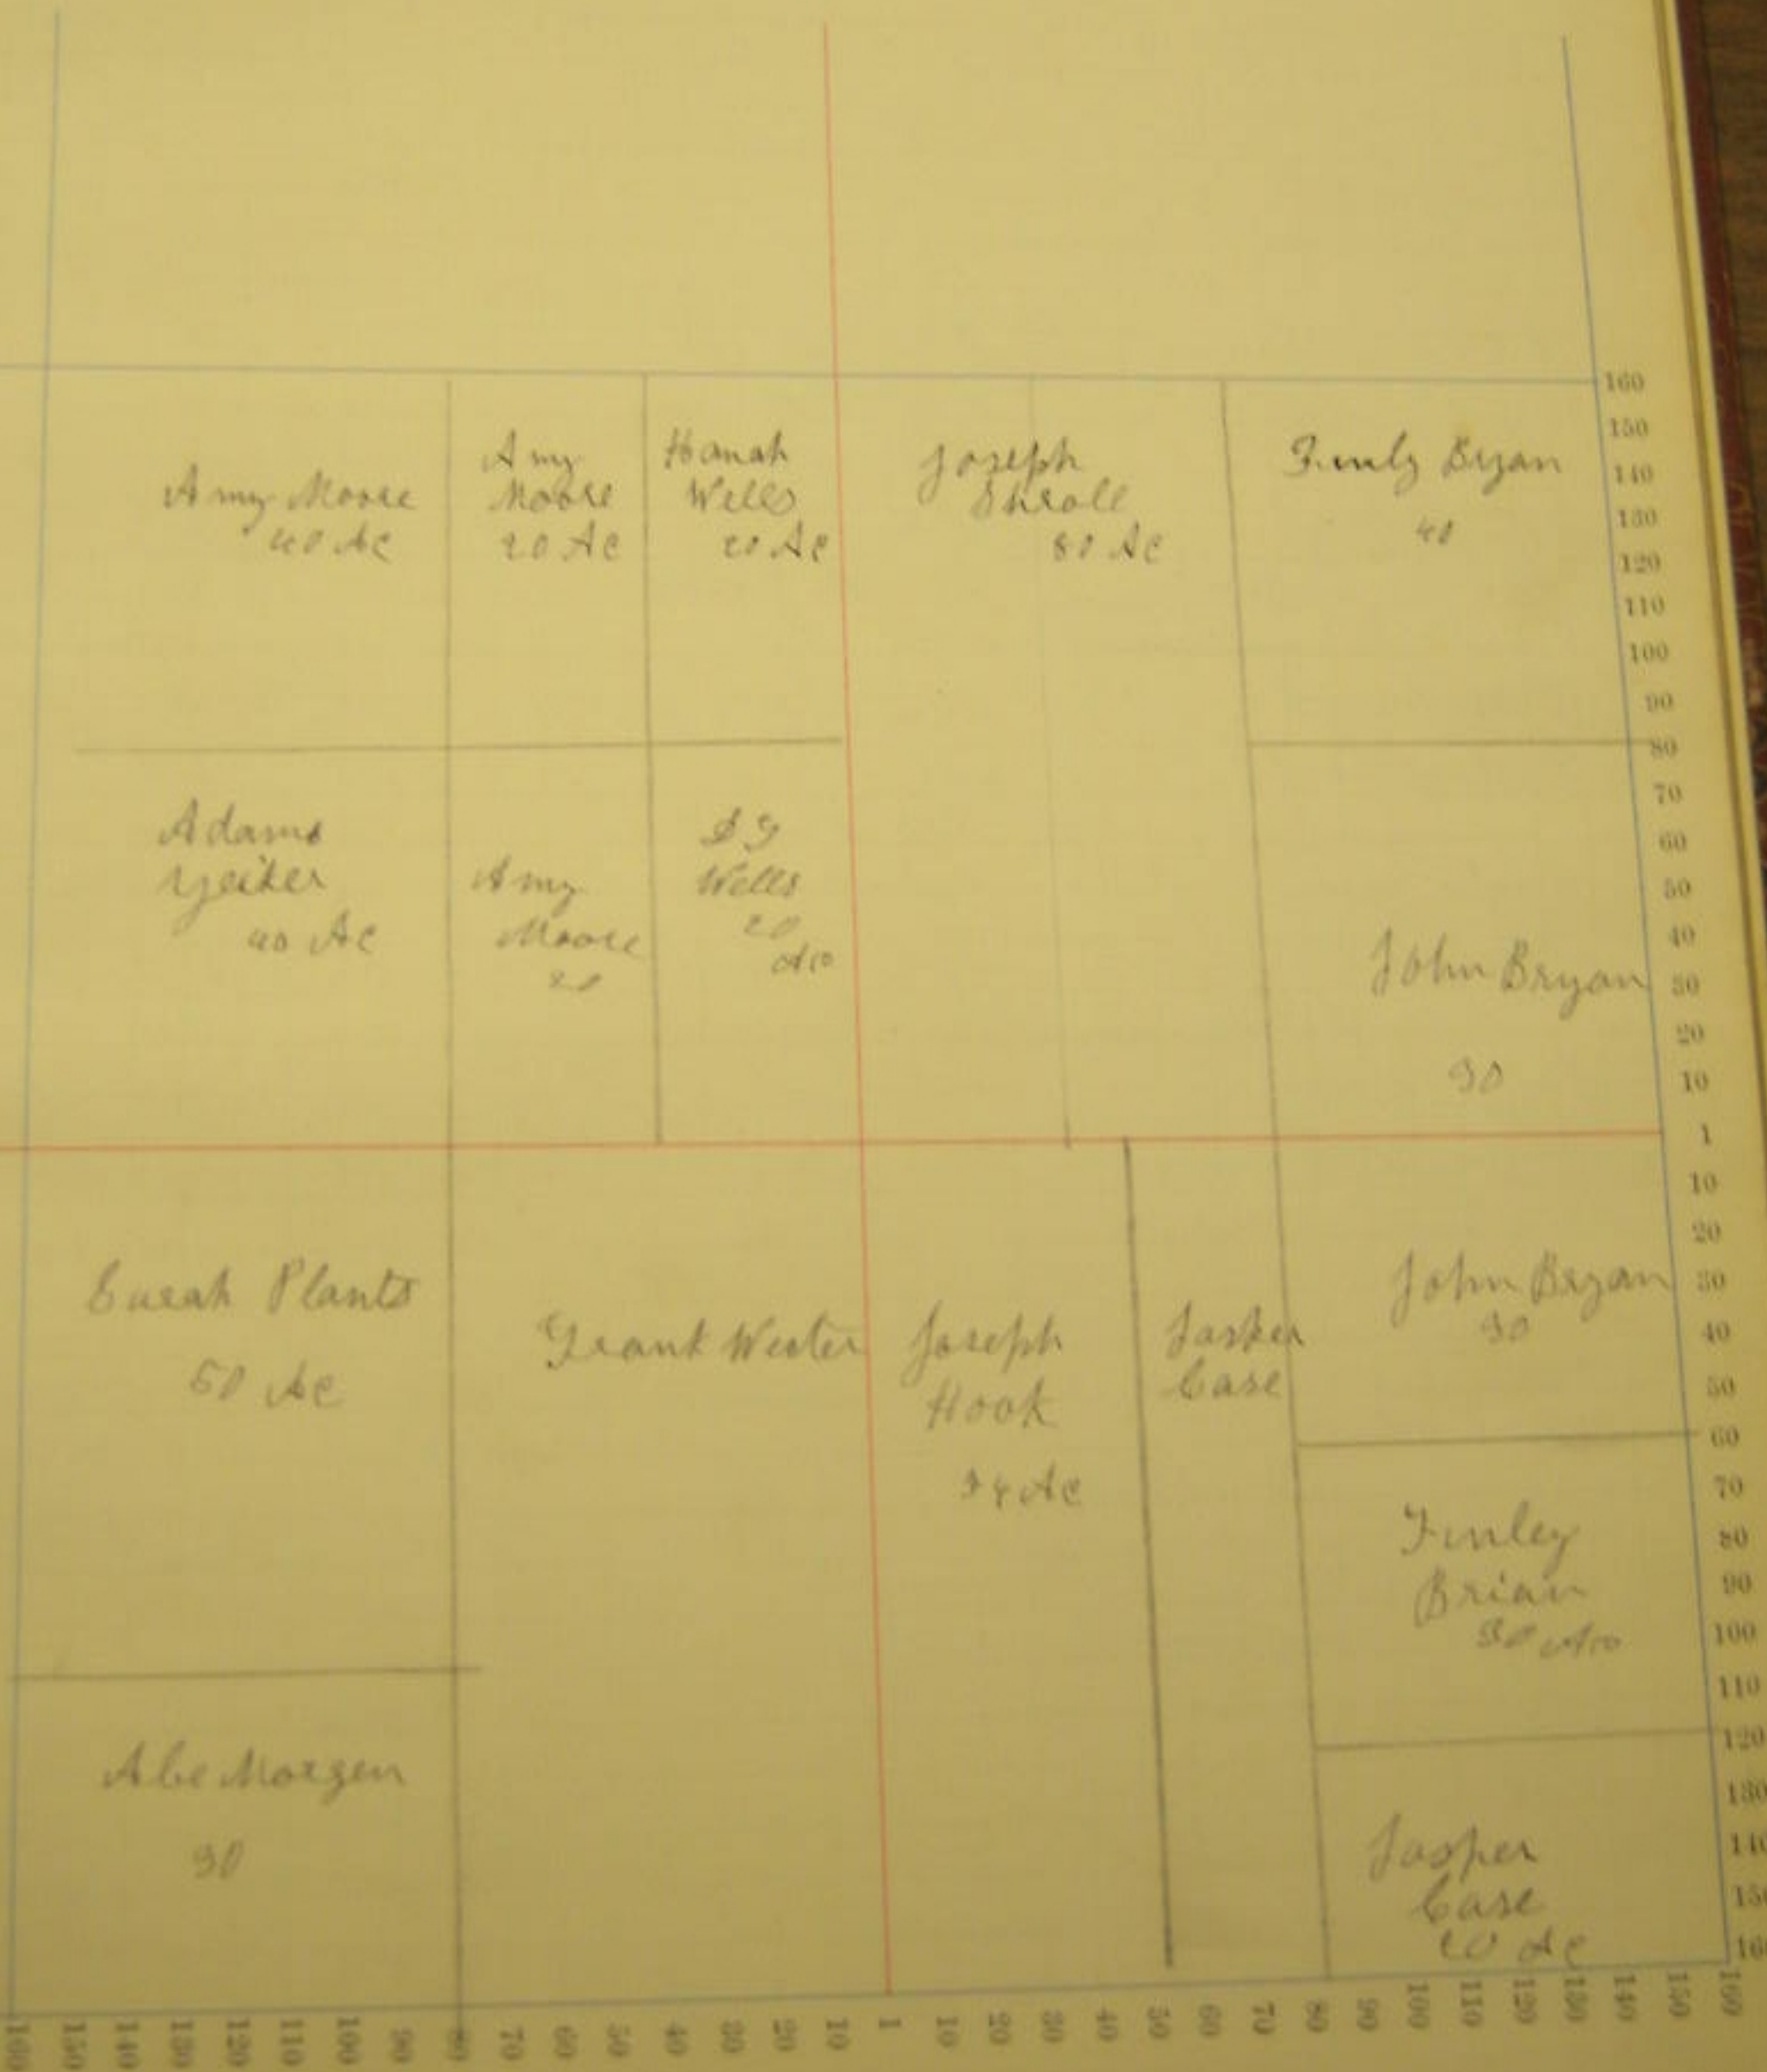 Amy Moore
40 Ac
Amy
Moore
20 Ac
Hanah
Wells
20 Ac
Joseph
Shroll
80 Ac
Finly Bryan
40
Adams
40 Ac
Amy
Moore
20
Wells
20
Acs
John Bryan
30
Plants
50 Ac
Grant Wester
Joseph
Hook
34 Ac
Jasper
Case
John Bryan
30
Finley
Brian
30 Acs
Abe Morgen
30
Jasper
Case
20 Ac
160
150
140
130
120
110
100
90
80
70
60
50
40
30
20
10
1
10
20
30
40
50
60
70
80
90
100
110
120
130
140
150
160
160 150 140 130 120 110 100 90 80 70 60 50 40 30 20 10 1 10 20 30 40 50 60 70 80 90 100 110 120 130 140 150 160